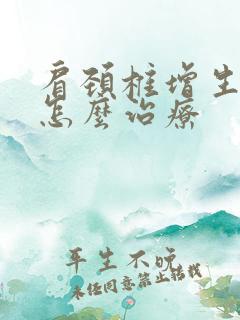 肩颈椎增生
怎麽治療
平生不晚
未经同意禁止转载